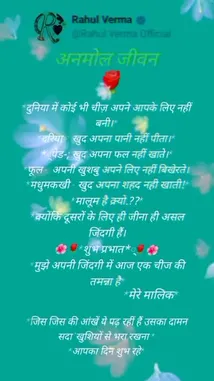 Rahul Verma
@Rahul Verma Official
अनमोल जीवन
*दुनिया में कोई भी चीज़ अपने आपके लिए नहीं
बनी।*
*दरिया - खुद अपना पानी नहीं पीता।*
*पेड़ - खुद अपना फल नहीं खाते।*
*फूल - अपनी खुशबु अपने लिए नहीं बिखेरते।
*मधुमक्खी - खुद अपना शहद नहीं खाती!*
*मालूम है क्यों.??*
*क्योंकि दूसरों के लिए ही जीना ही असल
जिंदगी हैं।
*शुभ प्रभात*
*मुझे अपनी जिंदगी में आज एक चीज की
तमन्ना है*
*मेरे मालिक*
*जिस जिस की आंखें ये पढ़ रहीं हैं उसका दामन
सदा खुशियों से भरा रखना*
*आपका दिन शुभ रहे*